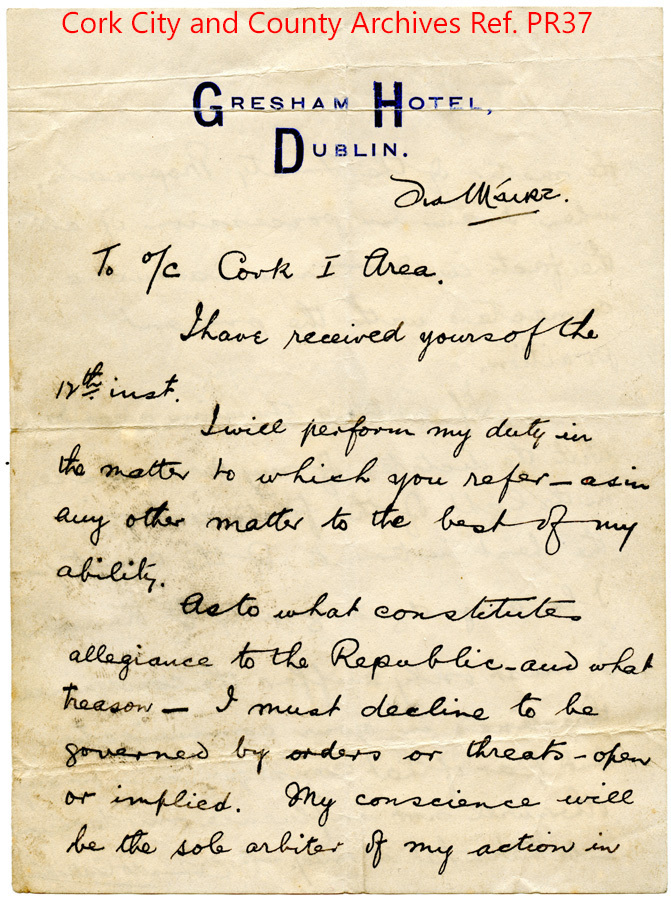 Cork City and County Archives Ref. PR37
GRESHAM HOTEL,
DUBLIN.
Dia Máirt.
To O/C Cork I Area.
I have received yours of the
12th inst.
I will perform my duty in
the matter to which you refer – as in
any other matter to the best of my
ability.
As to what constitutes
allegiance to the Republic – and what
treason – I must decline to be
governed by orders or threats – open
or implied. My conscience will
be the sole arbiter of my action in